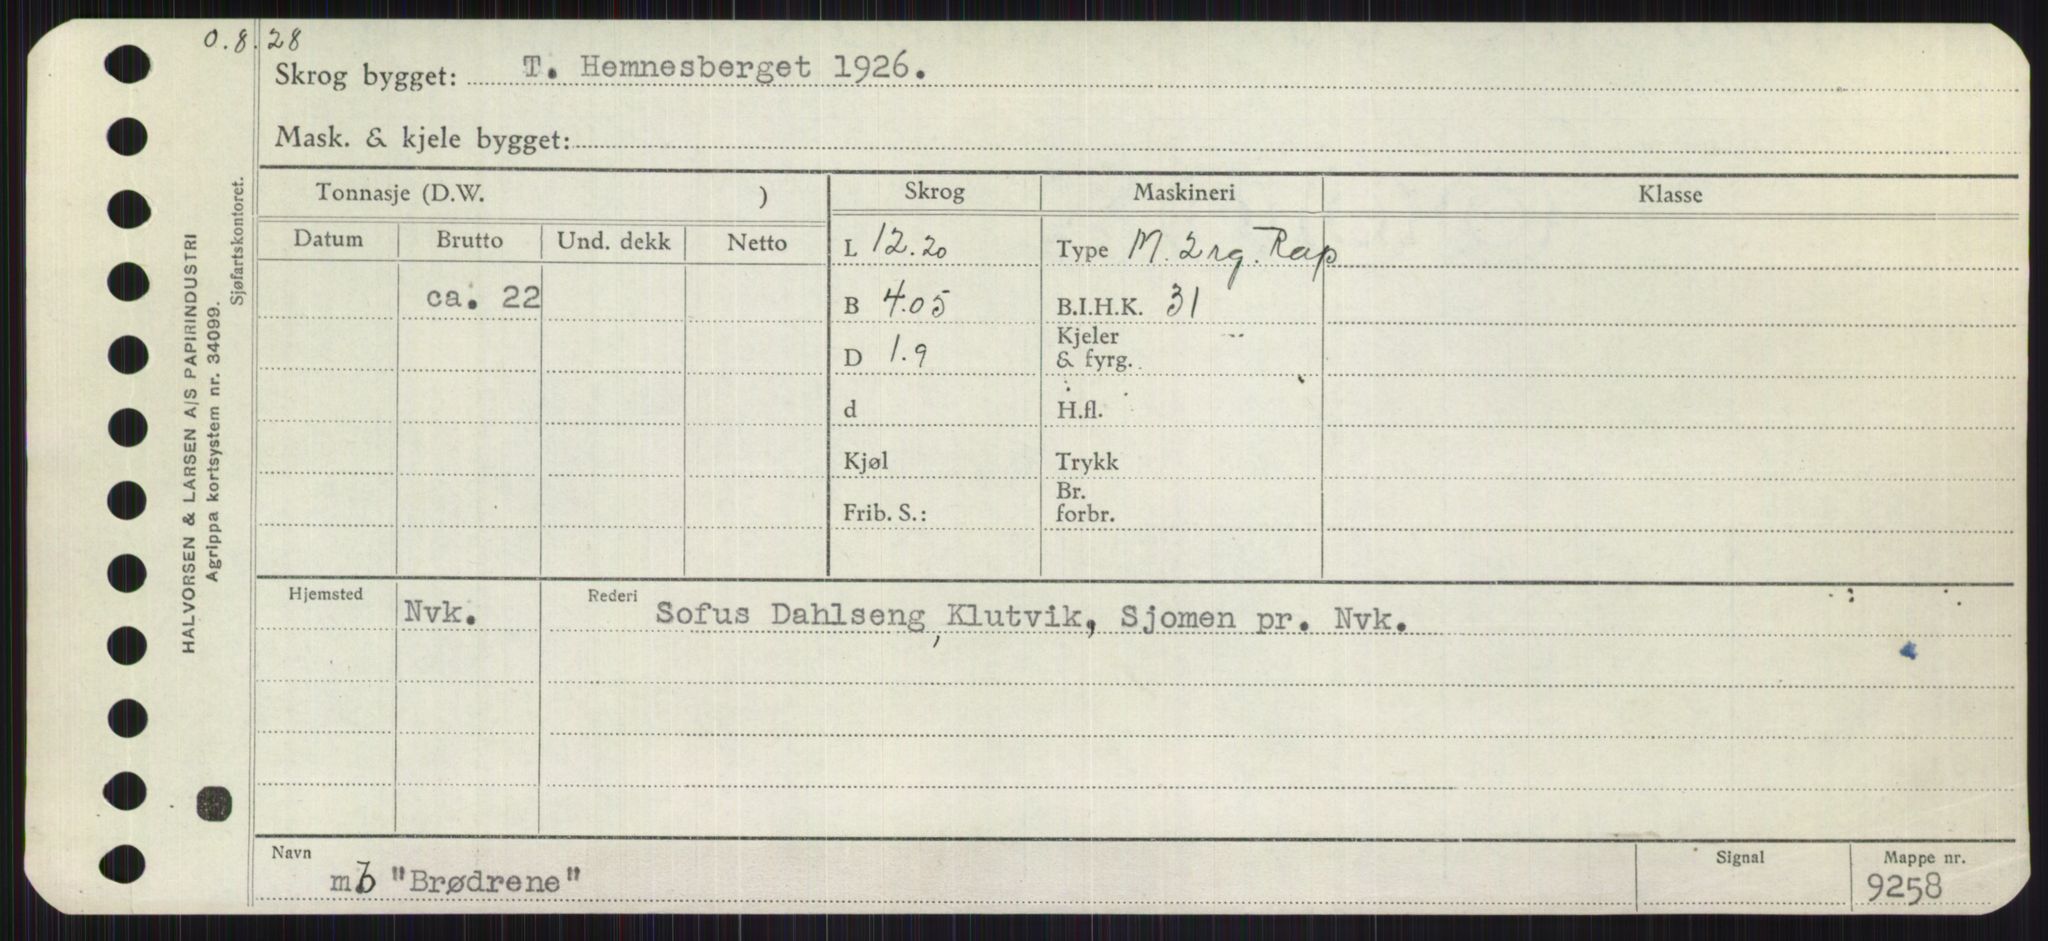 0.8.28
Skrog bygget: T. Hemnesberget 1926.
Mask. & kjele bygget:
Tonnasje (D.W. )
Skrog
Maskineri
Klasse
Datum
Brutto
Und. dekk
Netto
L 12.20
Type M. 2 rg. Rap
ca. 22
B 4.05
B.I.H.K. 31
D 1.9
Kjeler
& fyrg.
d
H.fl.
Kjøl
Trykk
Frib. S.:
Br.
forbr.
Hjemsted
Nvk.
Rederi
Sofus Dahlseng, Klutvik, Sjomen pr. Nvk.
Navn
m.b "Brødrene"
Signal
Mappe nr.
9258
HALVORSEN & LARSEN A/S PAPIRINDUSTRI
Agrippa kortsystem nr. 34099.
Sjøfartskontoret.